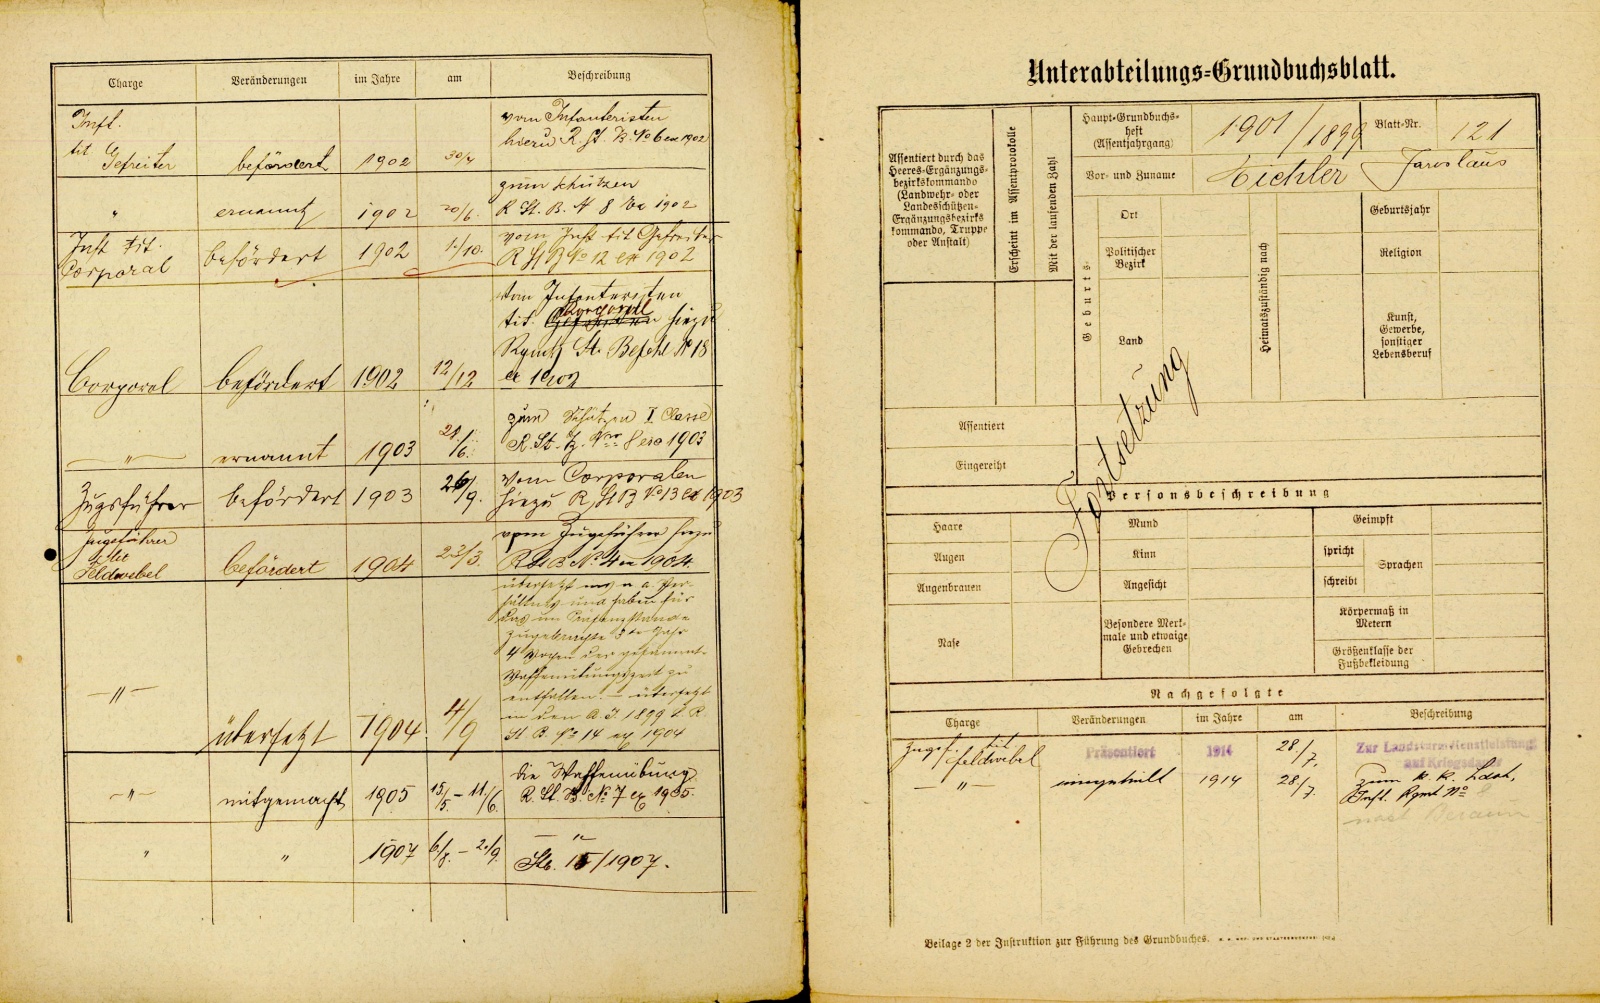 Charge Veränderungen im Jahre am Beschreibung
Inft.
tit
Gefreiter befördert 1902 30/4
vom Infanteristen
hiezu R. St. B. No 6 ex 1902
" ernannt 1902 20/6.
zum Schützen
R. St. B. N 8 ex 1902
Inft tit.
Corporal befördert 1902 1./10.
vom Inft tit Gefreiter
R St B No 12 ex 1902
Corporal befördert 1902 12/12
vom Infanteristen
Corporal
tit. hiezu
Rgmts St. Befehl No 18
ex 1902
" ernannt 1903 21./6.
zum Schützen I Classe
R. St. B. Nro 8 ex 1903
Zugsführer befördert 1903 26/9.
vom Corporalen
hiezu R St B No 13 ex 1903
Zugsführer
tit
Feldwebel befördert 1904 23/3.
vom Zugsführer hiezu
R St B No 4 ex 1904.
—"— übersetzt 1904. 4/9
übersetzt
und haben für
das im Präsenzstande
zugebrachte 3te Jahr
4 Wochen der gesammt-
Waffenübungszeit zu
entfallen. — übersetzt
in den A. J. 1899 R.
St B. No 14 ex 1904
—"— mitgemacht 1905 15/5 – 11/6.
die Waffenübung
R. St. B. No 7 ex 1905.
" " 1907 6/8. – 2./9.
— " —
Stb. 15/1907.
Unterabteilungs-Grundbuchsblatt.
Assentiert durch das
Heeres-Ergänzungs-
bezirkskommando
(Landwehr- oder
Landesschützen-
Ergänzungsbezirks
kommando, Truppe
oder Anstalt)
Erscheint im Assentprotokolle
Mit der laufenden Zahl
Haupt-Grundbuchs-
heft
(Assentjahrgang)
1901/1899
Blatt-Nr.
121
Vor- und Zuname
Eichler Jaroslaus
Geburts-
Ort
Politischer
Bezirk
Land
Heimatszuständig nach
Geburtsjahr
Religion
Kunst,
Gewerbe,
sonstiger
Lebensberuf
Fortsetzung
Assentiert
Eingereiht
Personsbeschreibung
Haare Mund Geimpft
Augen Kinn spricht
Sprachen
Augenbrauen Angesicht schreibt
Nase
Besondere Merk-
male und etwaige
Gebrechen
Körpermaß in
Metern
Größenklasse der
Fußbekleidung
Nachgefolgte
Charge Veränderungen im Jahre am Beschreibung
Zugsf. tit
feldwebel Präsentiert 1914 28./7.
Zur Landsturmdienstleistung
auf Kriegsdauer
—"— eingeteilt 1914 28/7.
zum k. k. Ldst.
Inft. Rgmt No
nach Beraun
Beilage 2 der Instruktion zur Führung des Grundbuches.